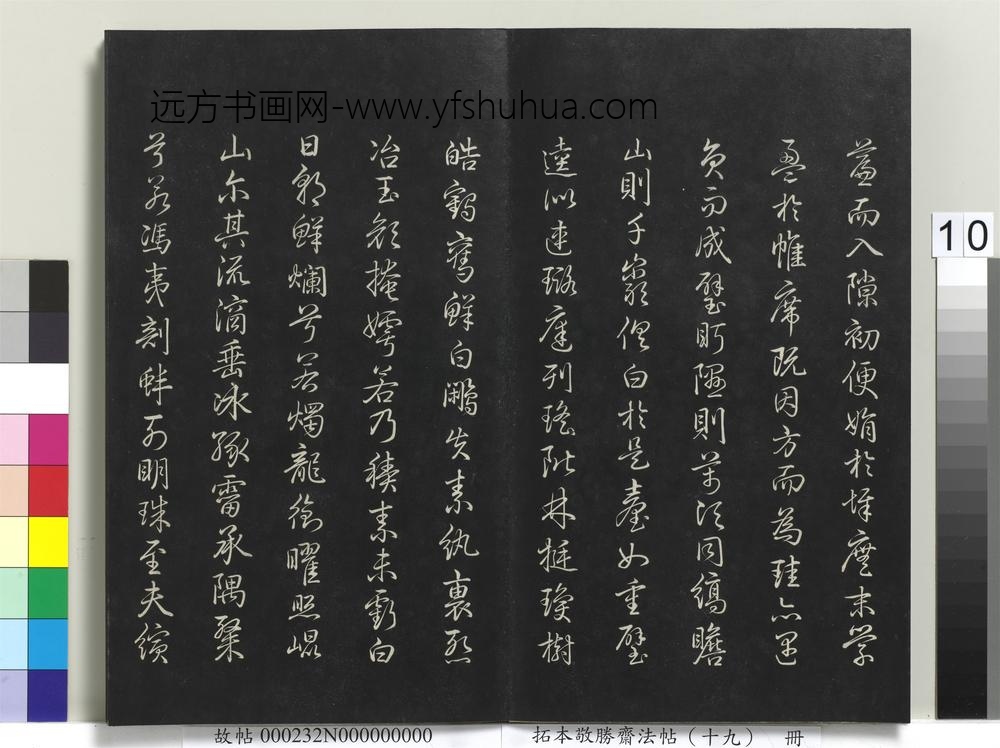 远方书画网-www.yfshuhua.com
簾而入隙初便娟於墀廡末縈
盈於帷席既因方而為珪亦遇
員而成璧眄隰則萬頃同縞瞻
山則千巖俱白於是臺如重璧
逵似連璐庭列瑤階林挺瓊樹
皓鶴奪鮮白鷴失素紈褏慙
冶玉顏掩嫮若乃積素未虧白
日朝鮮爛兮若燭龍銜曜照崐
山尔其流滴垂冰緣霤承隅粲
兮若馮夷剖蚌列明珠至夫繽
10
故帖 000232N000000000
拓本敬勝齋法帖（十九） 冊